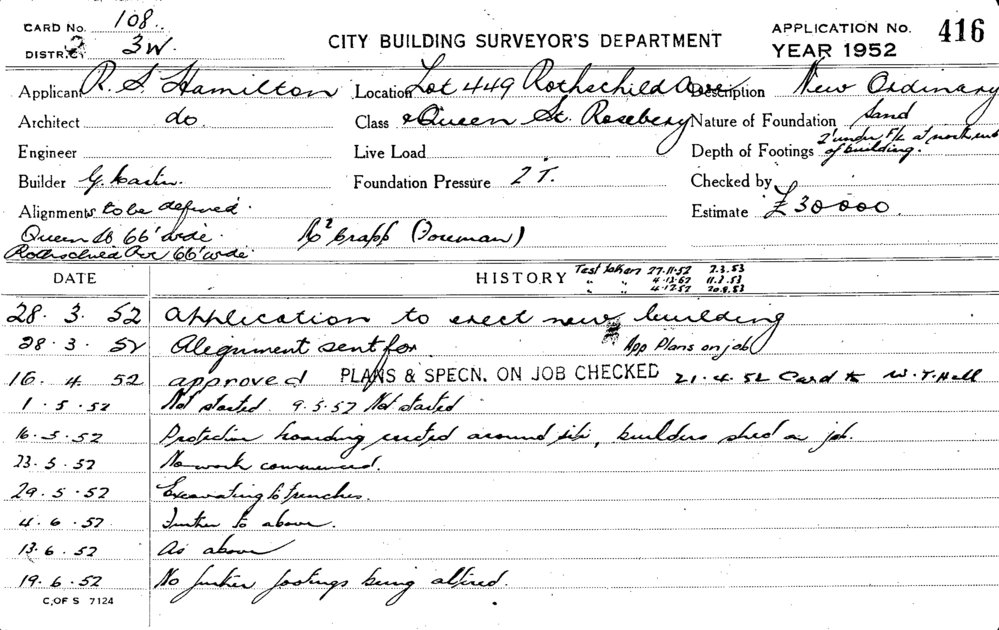 CARD No. 108.
DISTRICT 3W.
CITY BUILDING SURVEYOR'S DEPARTMENT
APPLICATION No. 416
YEAR 1952
Applicant R. S. Hamilton Location Lot 449 Rothschild Ave Description New Ordinary
Architect do Class Queen St. Rosebery Nature of Foundation Sand
Engineer Live Load Depth of Footings 2' under F/L at north end of building.
Builder G. Foundation Pressure 2 T. Checked by
Alignments to be defined. Estimate £30000.
Queen St 66' wide. Crapp (Foreman)
Rothschild Ave 66' wide.
DATE HISTORY Test taken 27.11.52 2.3.53
" " 4.12.52 11.3.53
" " 4.12.52 20.8.53
28. 3. 52 Application to erect new building
28. 3. 52 Alignment sent for App Plans on job
16. 4. 52 approved PLANS & SPECN. ON JOB CHECKED 21.4.52 Card to W.T. Hall
1. 5. 52 Not started. 9.5.52 Not started
16. 5. 52 Protection hoarding erected around site, builders shed on job.
23. 5. 52 No work commenced.
29. 5. 52 Excavating to trenches.
4. 6. 52 Further to above.
13. 6. 52 As above
19. 6. 52 No further footings being altered.
C. OF S 7124